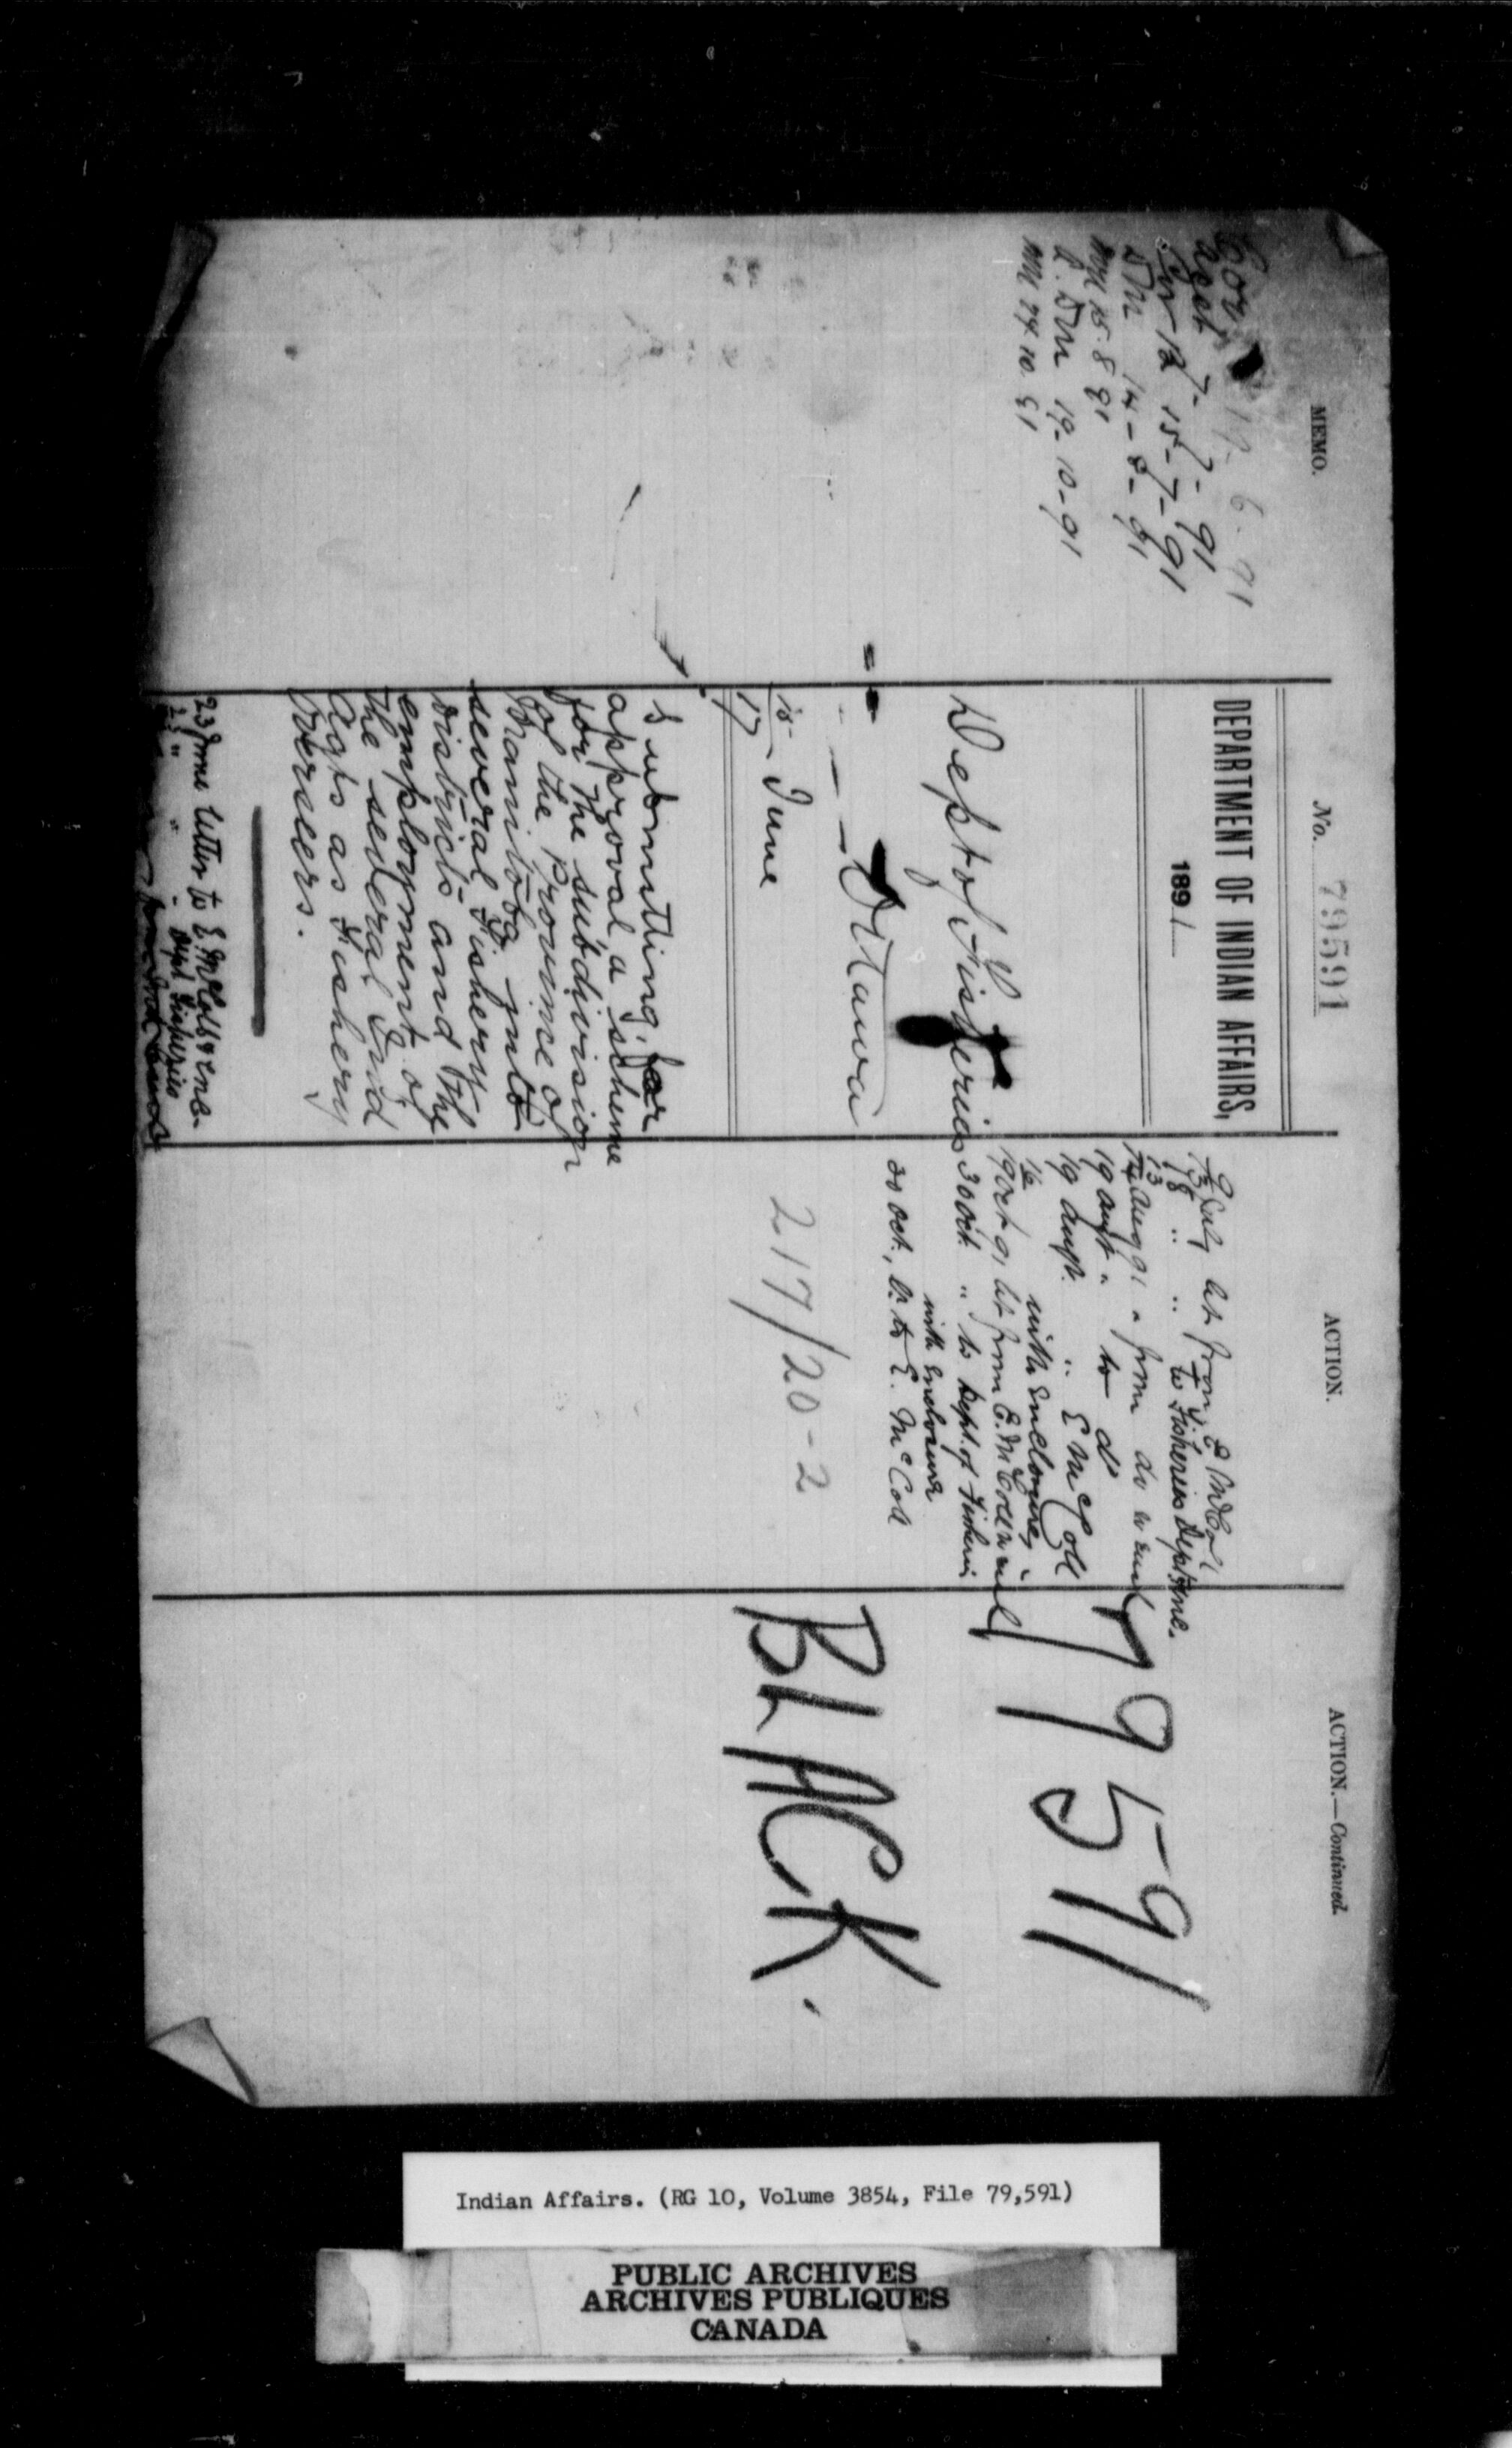 MEMO.
Cor 19. 6. 91
7-7-91
15-7-91
DM 14-8-91
15.8.91
D.M 19-10-91
24.10.91
No. 79591
DEPARTMENT OF INDIAN AFFAIRS,
1891
Dept of Fisheries
Ottawa
17 June
Submitting, for
approval, a scheme
for the subdivision
of the province of
Manitoba into
several Fishery
districts and the
employment of
the several Ind
Agts as Fishery
Overseers.
23 June letter to E. McColl & enc.
23 " " " Dept Fisheries
ACTION.
July let from E McColl
18 " " to Fisheries Dept & enc.
13
14 Aug 91 " from do w encl
19 augt " to do
19 augt. " E McColl
with enclosures
16
19 Oct 91 let from E. McColl w encl
30 Oct. " to Dept. of Fisheries
with enclosure
30 Oct., L. to E. McColl
217/20-2
ACTION.—Continued.
79591
BLACK.
Indian Affairs. (RG 10, Volume 3854, File 79,591)
PUBLIC ARCHIVES
ARCHIVES PUBLIQUES
CANADA